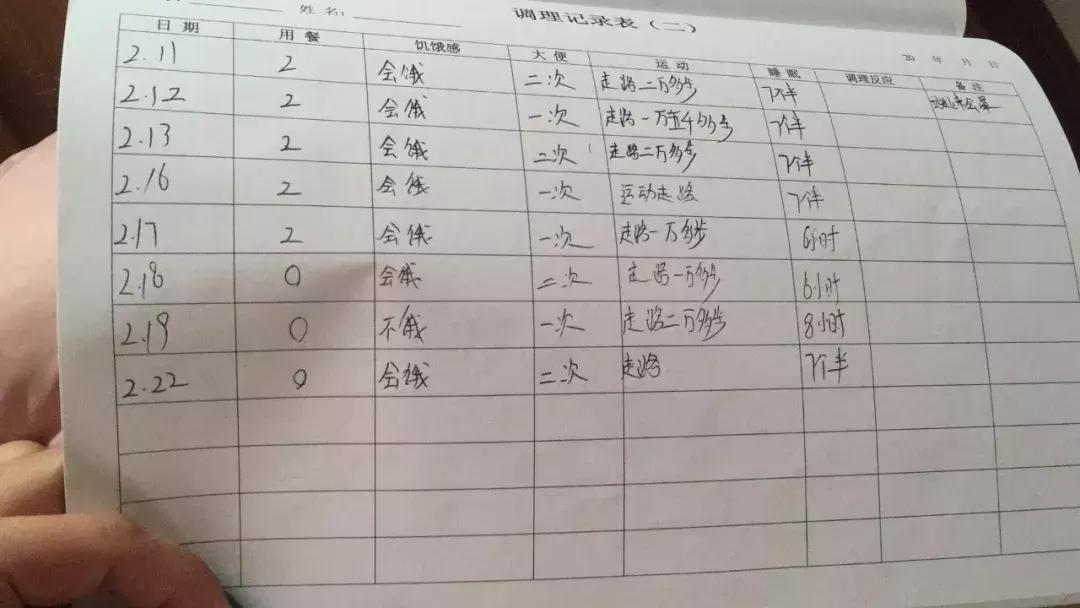 姓名: 调理记录表（二）
20 年 月 日
日期 用餐 饥饿感 大便 运动 睡眠 调理反应 备注
2.11 2 会饿 二次 走路二万多步 7个半
2.12 2 会饿 一次 走路一万 7个半
2.13 2 会饿 二次 走路二万多步 7个半
2.16 2 会饿 一次 运动走路 7个半
2.17 2 会饿 一次 走路一万多步 6小时
2.18 0 会饿 二次 走路一万多步 6小时
2.19 0 不饿 一次 走路二万多步 8小时
2.22 0 会饿 二次 走路 7个半